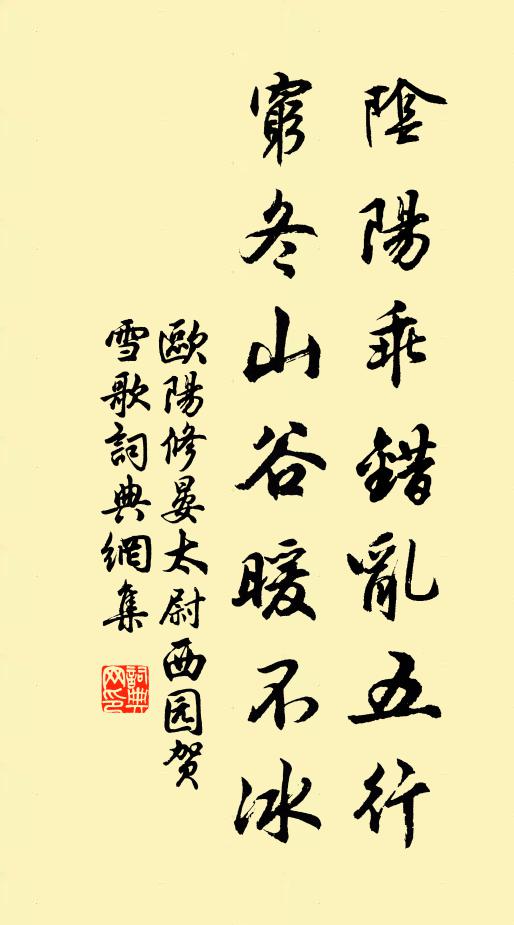 陰陽乖錯亂五行
窮冬山谷暖不冰
歐陽修晏太尉西园贺
雪歌詞典網集
詞典
网印